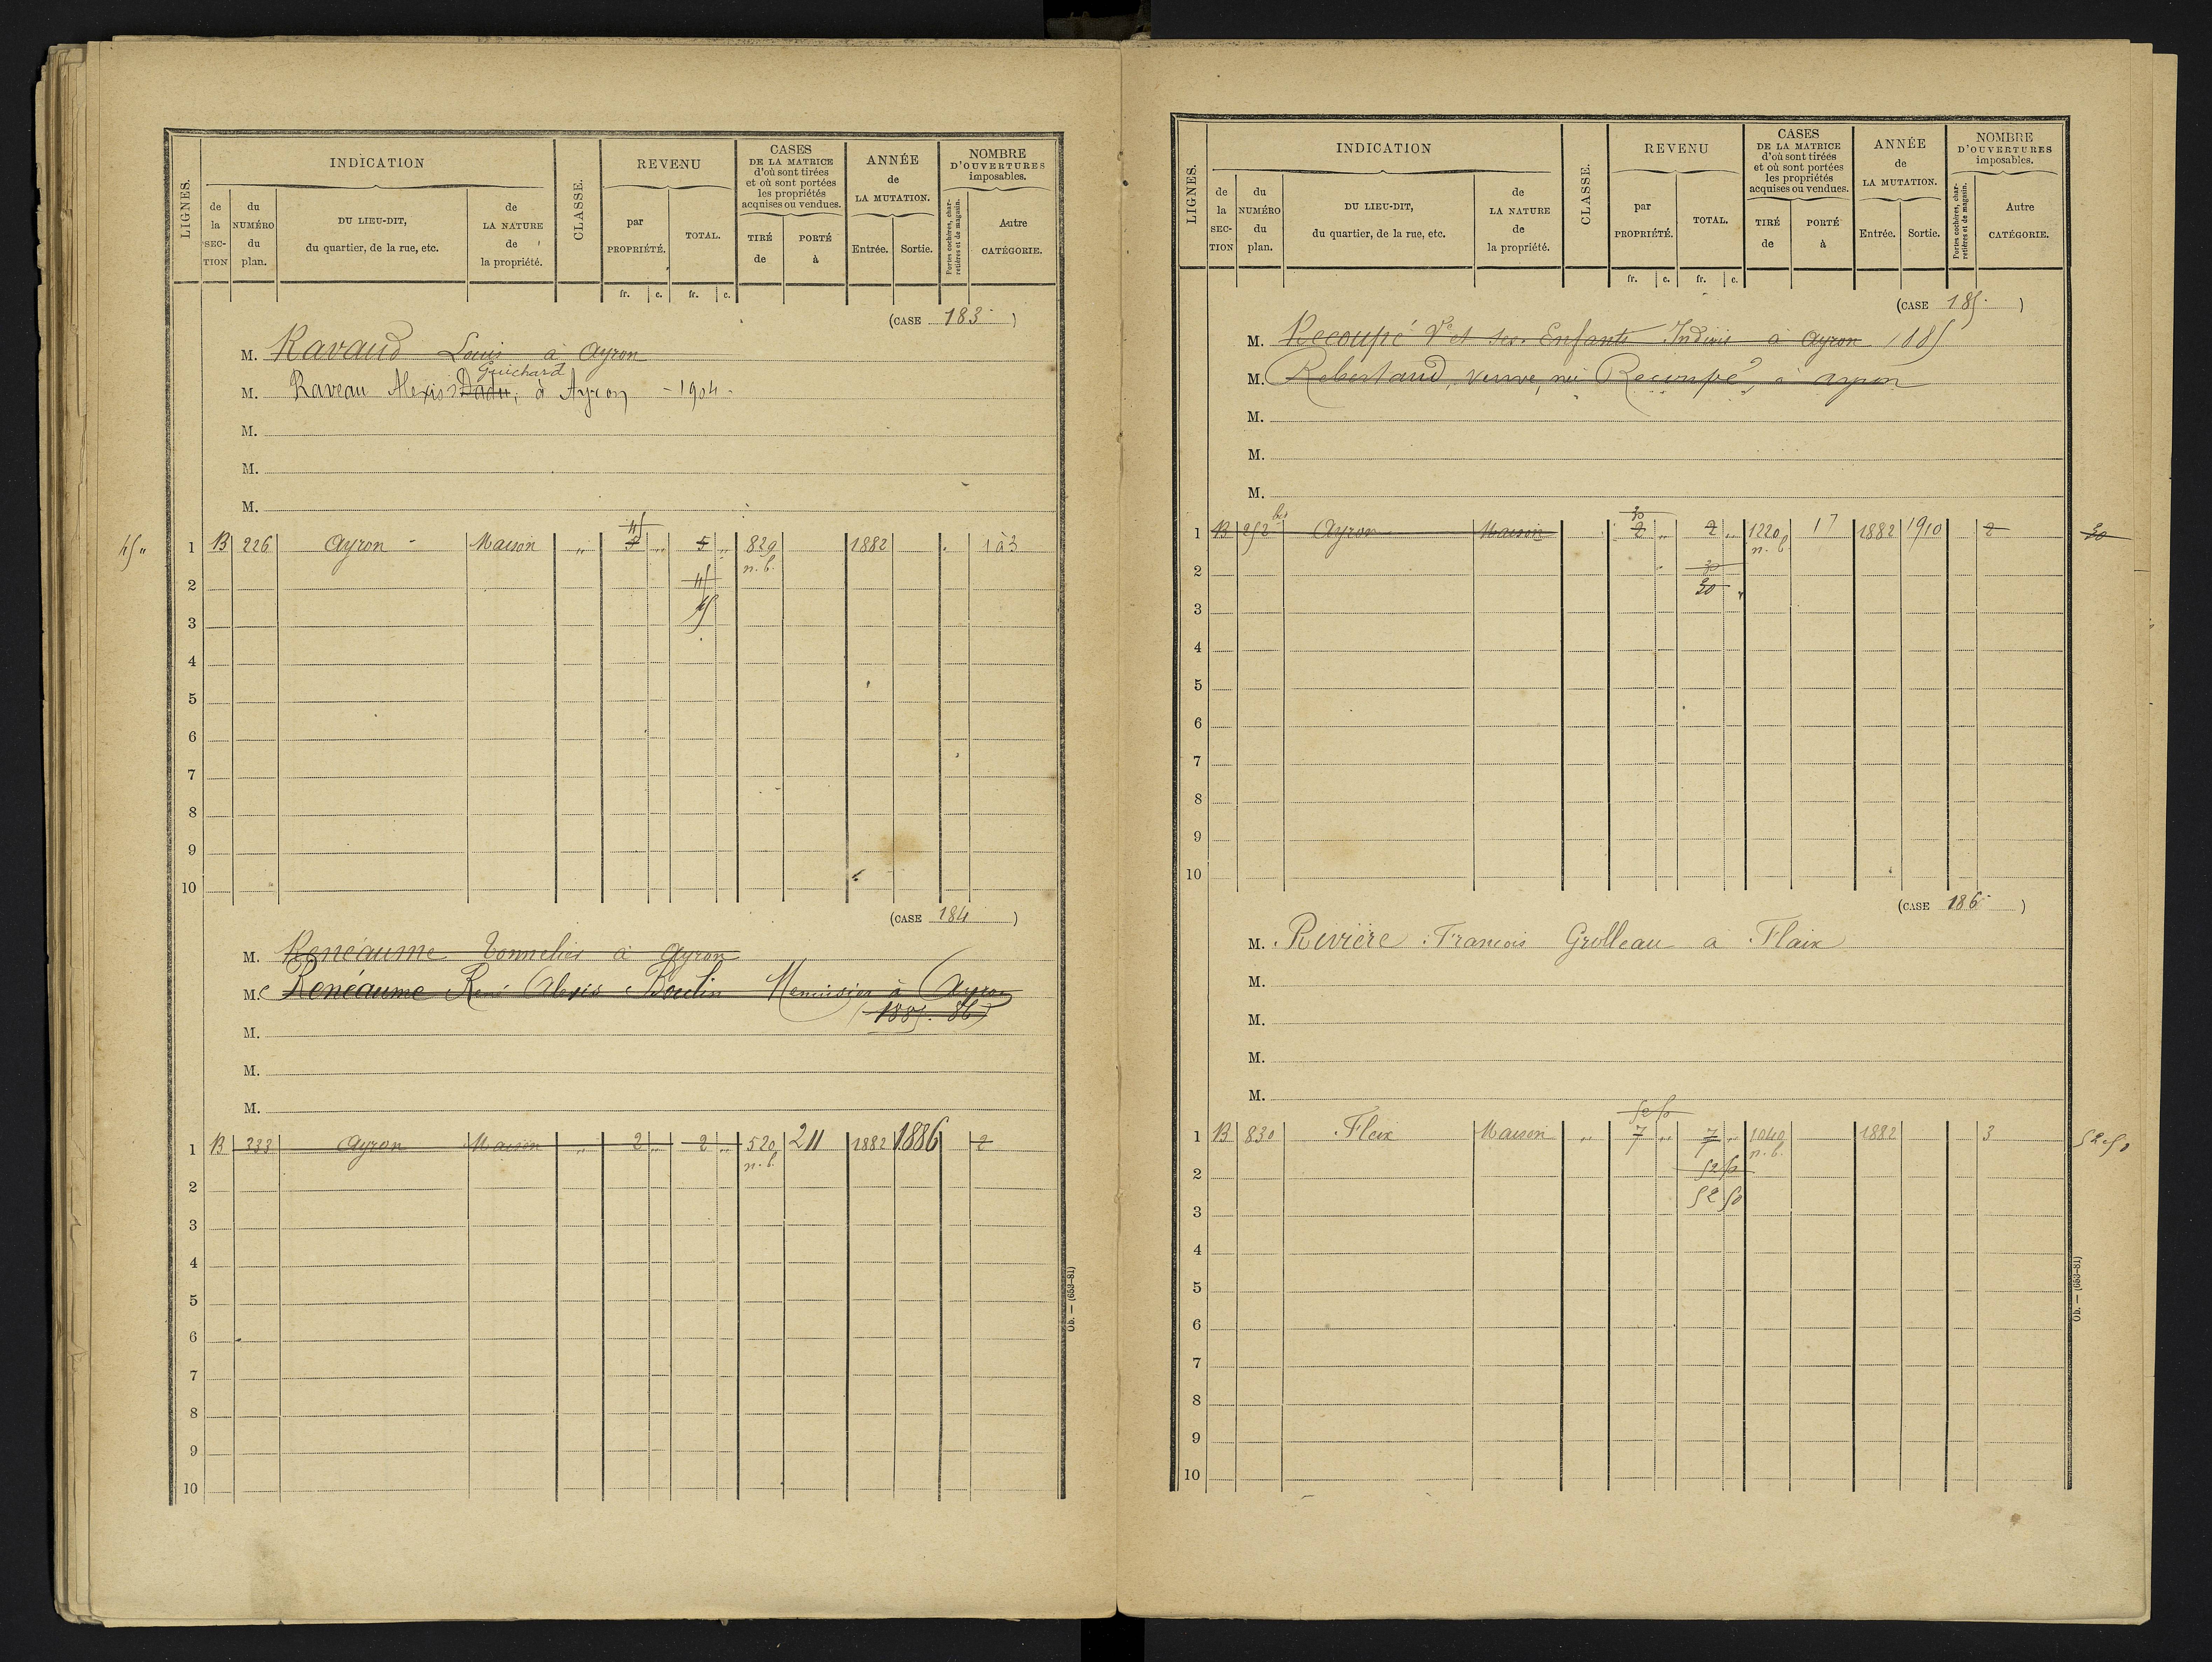 LIGNES.
INDICATION
de la SECTION
du NUMÉRO du plan.
DU LIEU-DIT, du quartier, de la rue, etc.
de LA NATURE de la propriété.
CLASSE.
REVENU
par PROPRIÉTÉ.
TOTAL.
CASES DE LA MATRICE d'où sont tirées et où sont portées les propriétés acquises ou vendues.
TIRÉ de
PORTÉ à
ANNÉE de LA MUTATION.
Entrée.
Sortie.
NOMBRE D'OUVERTURES imposables.
Portes cochères, charretières et de magasin.
Autre CATÉGORIE.
fr. c. fr. c.
(CASE 183 )
M. Ravaud Louis à Ayron
Guichard
M. Raveau Alexis Dadu, à Ayron - 1904 -
M.
M.
M.
45
45 „ 1 B 226 Ayron Maison „ 5 „ 5 „ 829 1882 1 à 3
n. b.
2 45
3 45
4
5
6
7
8
9
10
(CASE 184 )
M. Renéaume Tonnelier à Ayron
M. Renéaume René Alexis Boulin Menuisier à Ayron
1885. 86
M.
M.
M.
1 B 233 Ayron Maison „ 2 „ 2 „ 520 211 1882 1886 2
n. b.
2
3
4
5
6
7
8
9
10
Ob. — (653-81)
LIGNES.
INDICATION
de la SECTION
du NUMÉRO du plan.
DU LIEU-DIT, du quartier, de la rue, etc.
de LA NATURE de la propriété.
CLASSE.
REVENU
par PROPRIÉTÉ.
TOTAL.
CASES DE LA MATRICE d'où sont tirées et où sont portées les propriétés acquises ou vendues.
TIRÉ de
PORTÉ à
ANNÉE de LA MUTATION.
Entrée.
Sortie.
NOMBRE D'OUVERTURES imposables.
Portes cochères, charretières et de magasin.
Autre CATÉGORIE.
fr. c. fr. c.
(CASE 185 )
M. Recoupé Ve et ses Enfants Indivis à Ayron 1885
M. Robertaud, veuve, née Recoupé, à Ayron
M.
M.
M.
30
1 B 252 bis Ayron Maison 2 „ 2 „ 1220 17 1882 1910 2 30
n. b.
2 30
30
3
4
5
6
7
8
9
10
(CASE 186 )
M. Rivière François Grolleau a Flaix
M.
M.
M.
M.
52 50
1 B 830 Flaix Maison „ 7 „ 7 „ 1040 1882 3 52 50
n. b.
2 52 50
52 50
3
4
5
6
7
8
9
10
Ob. — (653-81)